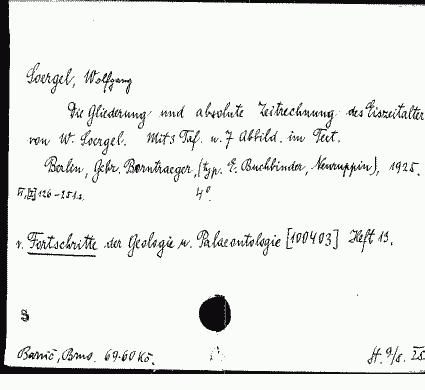 Soergel, Wolfgang
Die Gliederung und absolute Zeitrechnung des Eiszeitalter
von W. Soergel. Mit 3 Taf. u. 7 Abbild. im Text.
Berlin, Gebr. Borntraeger, (typ. E. Buchbinder, Neuruppin), 1925.
126-251 s. 4°.
v. Fortschritte der Geologie u. Palaeontologie [100403] Heft 13.
Barvič, Brno. 69·60 Kč. H. 9/8.